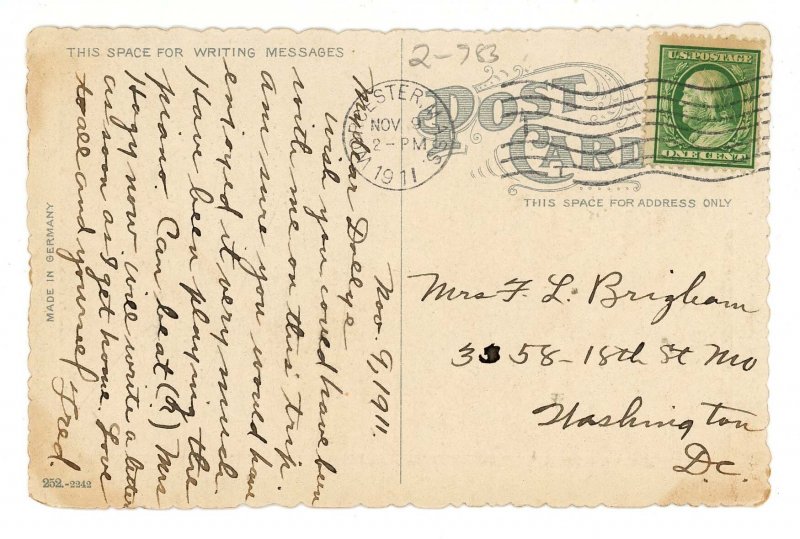 THIS SPACE FOR WRITING MESSAGES
2-783
POST
CARD
WORCESTER, MASS.
NOV 9
2-PM
1911
U.S. POSTAGE
ONE CENT
THIS SPACE FOR ADDRESS ONLY
MADE IN GERMANY
Nov. 9, 1911.
My dear Dollye
Wish you could have been
with me on this trip.
Am sure you would have
enjoyed it very much.
Have been playing the
piano Can beat (?) Mrs
Hogy now. Will write a letter
as soon as I get home. Love
to all and yourself
Fred.
Mrs F. L. Brigham
3358-18th St Mo
Washington
D.C.
252.-2242